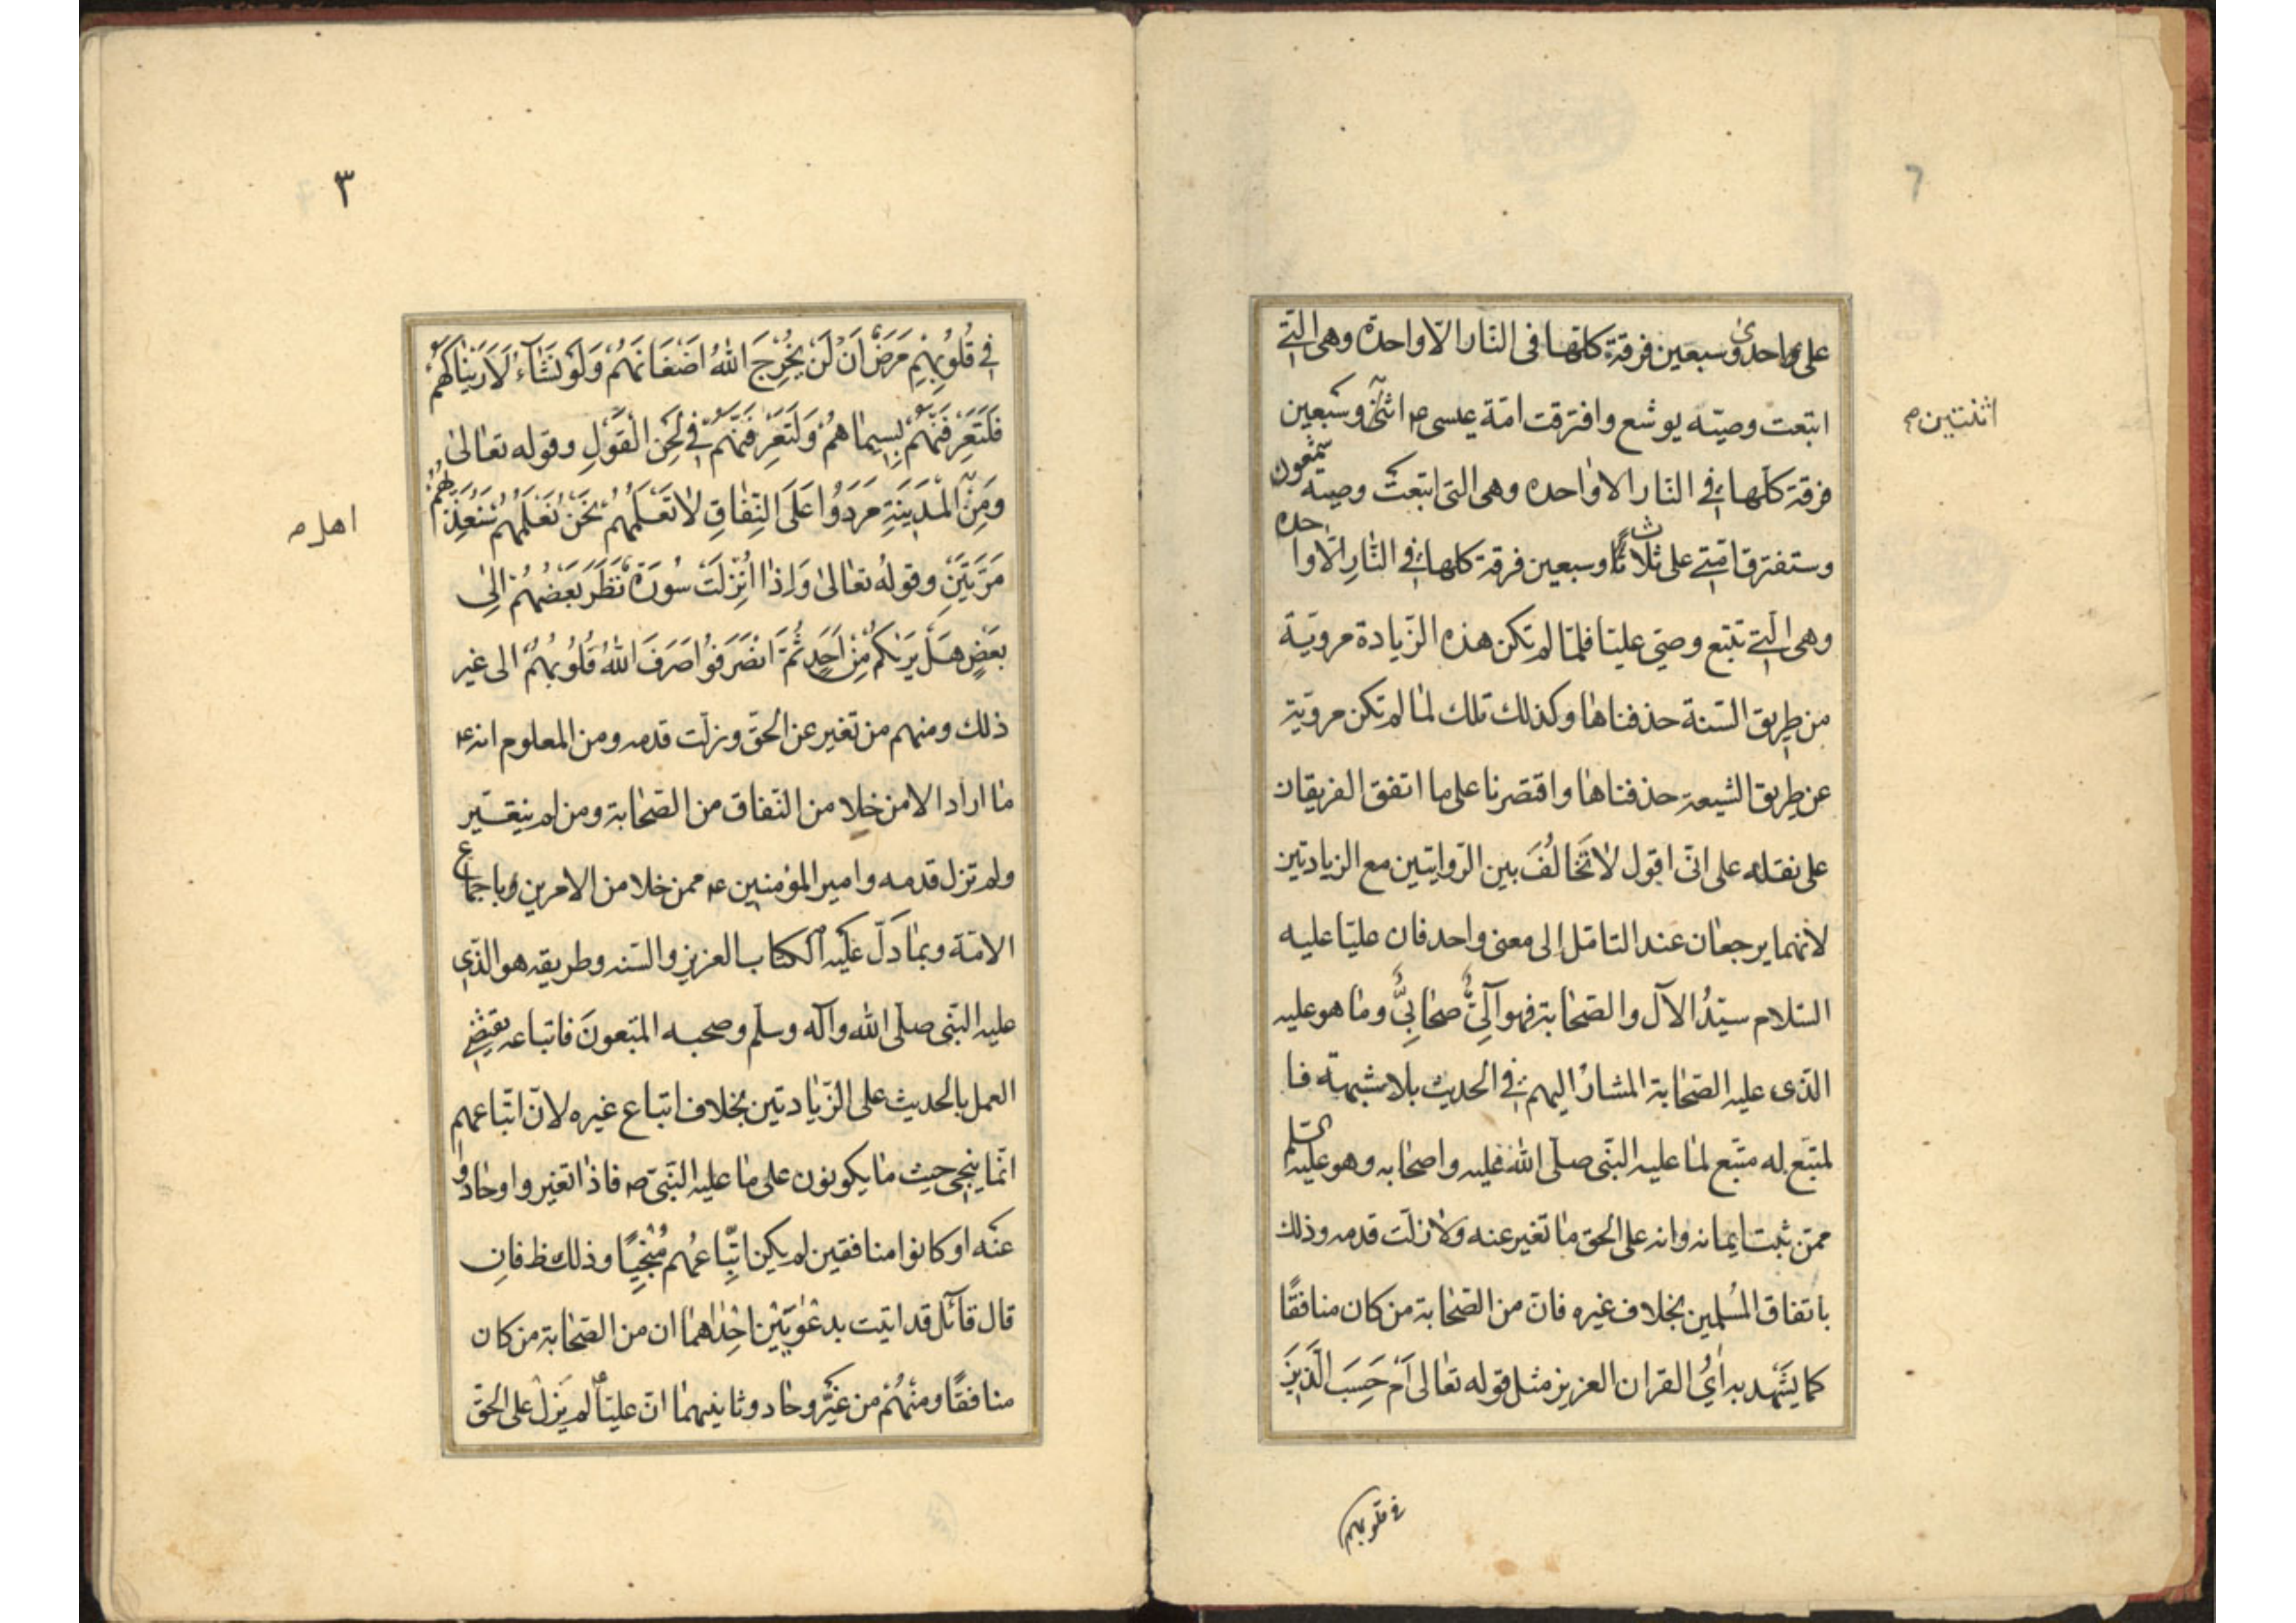 على احدى وسبعين فرقة كلها فى النار الّا واحدة وهى التے
اتبعت وصيّه يوشع وافترقت امّة عيسى ع اثنى وسبعين
اثنتين
فرقة كلّها فے النار الا واحده وهى التى اتبعت وصيّه شمعون
وستفترق امّتے على ثلاث وسبعين فرقة كلها فے النّارِ الّا واحده
وهى الّتے تتبع وصيّى عليّا فلمّا لم تكن هذه الزّيادة مرويّة
من طريق السّنة حذفناها وكذلك تلك لما لم تكن مرويّة
عن طريق الشيعة حذفناها واقتصرنا على ما اتفق الفريقان
على نقله على انّى اقول لا تَخالُفَ بين الرّوايتين مع الزيادتين
لأنهما يرجعان عند التامّل الى معنى واحد فان عليّا عليه
السّلام سيّدُ الآل والصّحابة فهو آلِىٌّ صحابِىٌّ وما هو عليه
الذّى عليه الصّحابة المشارُ اليهم فے الحديث بلا شبهة فا
لمتّبع له متّبع لما عليه النّبى صلّى الله عليه واصحابه وهو عليه السّلم
ممّن ثبت ايمانه وانه على الحق ما تغير عنه ولا زلّت قدمه وذلك
باتفاق المُسلمين بخلاف غيره فانّ من الصّحابة من كان منافقًا
كما يَشْهد به اٰىُ القران العزيز مثل قوله تعالى اَمْ حَسِبَ الَّذِينَ
فى قلوبهم
٣
فِے قُلُوبِهِمْ مَرَضٌ اَنْ لَنْ يُخْرِجَ اللهُ اَضْغَانَهُمْ وَلَوْ نَشَآءُ لَاَرَيْنٰاكَهُمْ
فَلَتَعْرِفَتَّهُمْ بِسِيمٰاهُمْ وَلَتَعْرِفَنَّهُمْ فے لَحْنِ الْقَوْلِ وقوله تعالىٰ
وَمِنَ الْمَدِينَةِ مَرَدُوا عَلَى النِّفٰاقِ لاٰ تَعْلَمُهُمْ نَحْنُ نَعْلَمُهُمْ سَنُعَذِّبُهُمْ
اهل
مَرَّتَيْنِ وقولُه تعالىٰ وَاِذٰا اُنْزِلَتْ سُورَةٌ نَظَرَ بَعْضُهُمْ اِلىٰ
بَعْضٍ هَلْ يَرٰيكُمْ مِنْ اَحَدٍ ثُمَّ انْصَرَفُوا صَرَفَ اللهُ قُلُوبَهُمْ الى غير
ذلك ومنهم من تغير عن الحقّ وزلّت قدمه ومن المعلوم انه ع
ما اراد الا من خلا من النّفاق من الصّحابة ومن لم يتغيّر
ولم تزل قدمه وامير المؤمنين ع ممن خلا من الامرين وباجماع
الامّة وبما دَلّ عَلَيْه الكتاب العزيز والسّنه وطريقه هو الّذى
عليه النّبى صلّى الله وآله وسلّم وصحبه المتّبعونَ فاتباعه يقتضے
العمل بالحديث على الزّيادتين بخلاف اتباع غيره لانّ اتّباعهم
انّما ينجى حيث ما يكونون على ما عليه النّبىّ ص فاذا تغيروا وحادوا
عنه او كانوا منافقين لم يكن اتِّباعُهم مُنْجِيًا وذلك ظ فان
قال قائل قد اتيت بدعْوَيَيْن اِحْدٰاهما ان من الصّحابة من كان
منافقًا ومنْهُمْ من غَيَّرَ وحاد وثانيهما انّ عليّاً لم يَزلْ على الحقّ